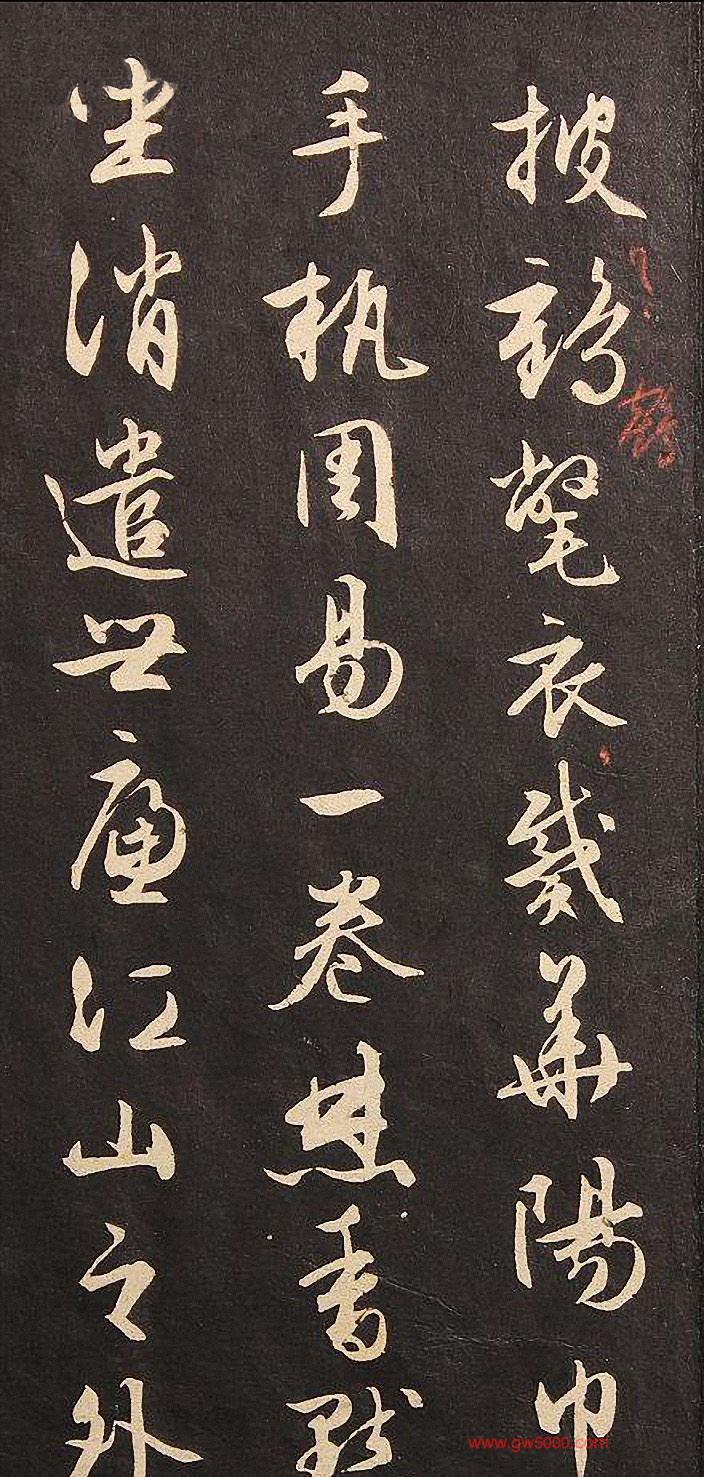 披鶴氅衣戴華陽巾
手執周易一卷焚香默
坐消遣世慮江山之外
鶴
www.gw5000.com